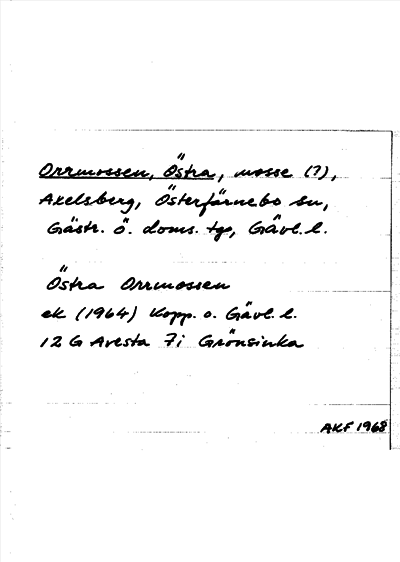 Orrmossen, Östra, mosse (?),
Axelsberg, Österfärnebo sn,
Gästr. ö. doms. tg, Gävl. l.
Östra Orrmossen
ek (1964) Kopp. o. Gävl. l.
12 G Avesta 7i Grönsinka
AKF 1968